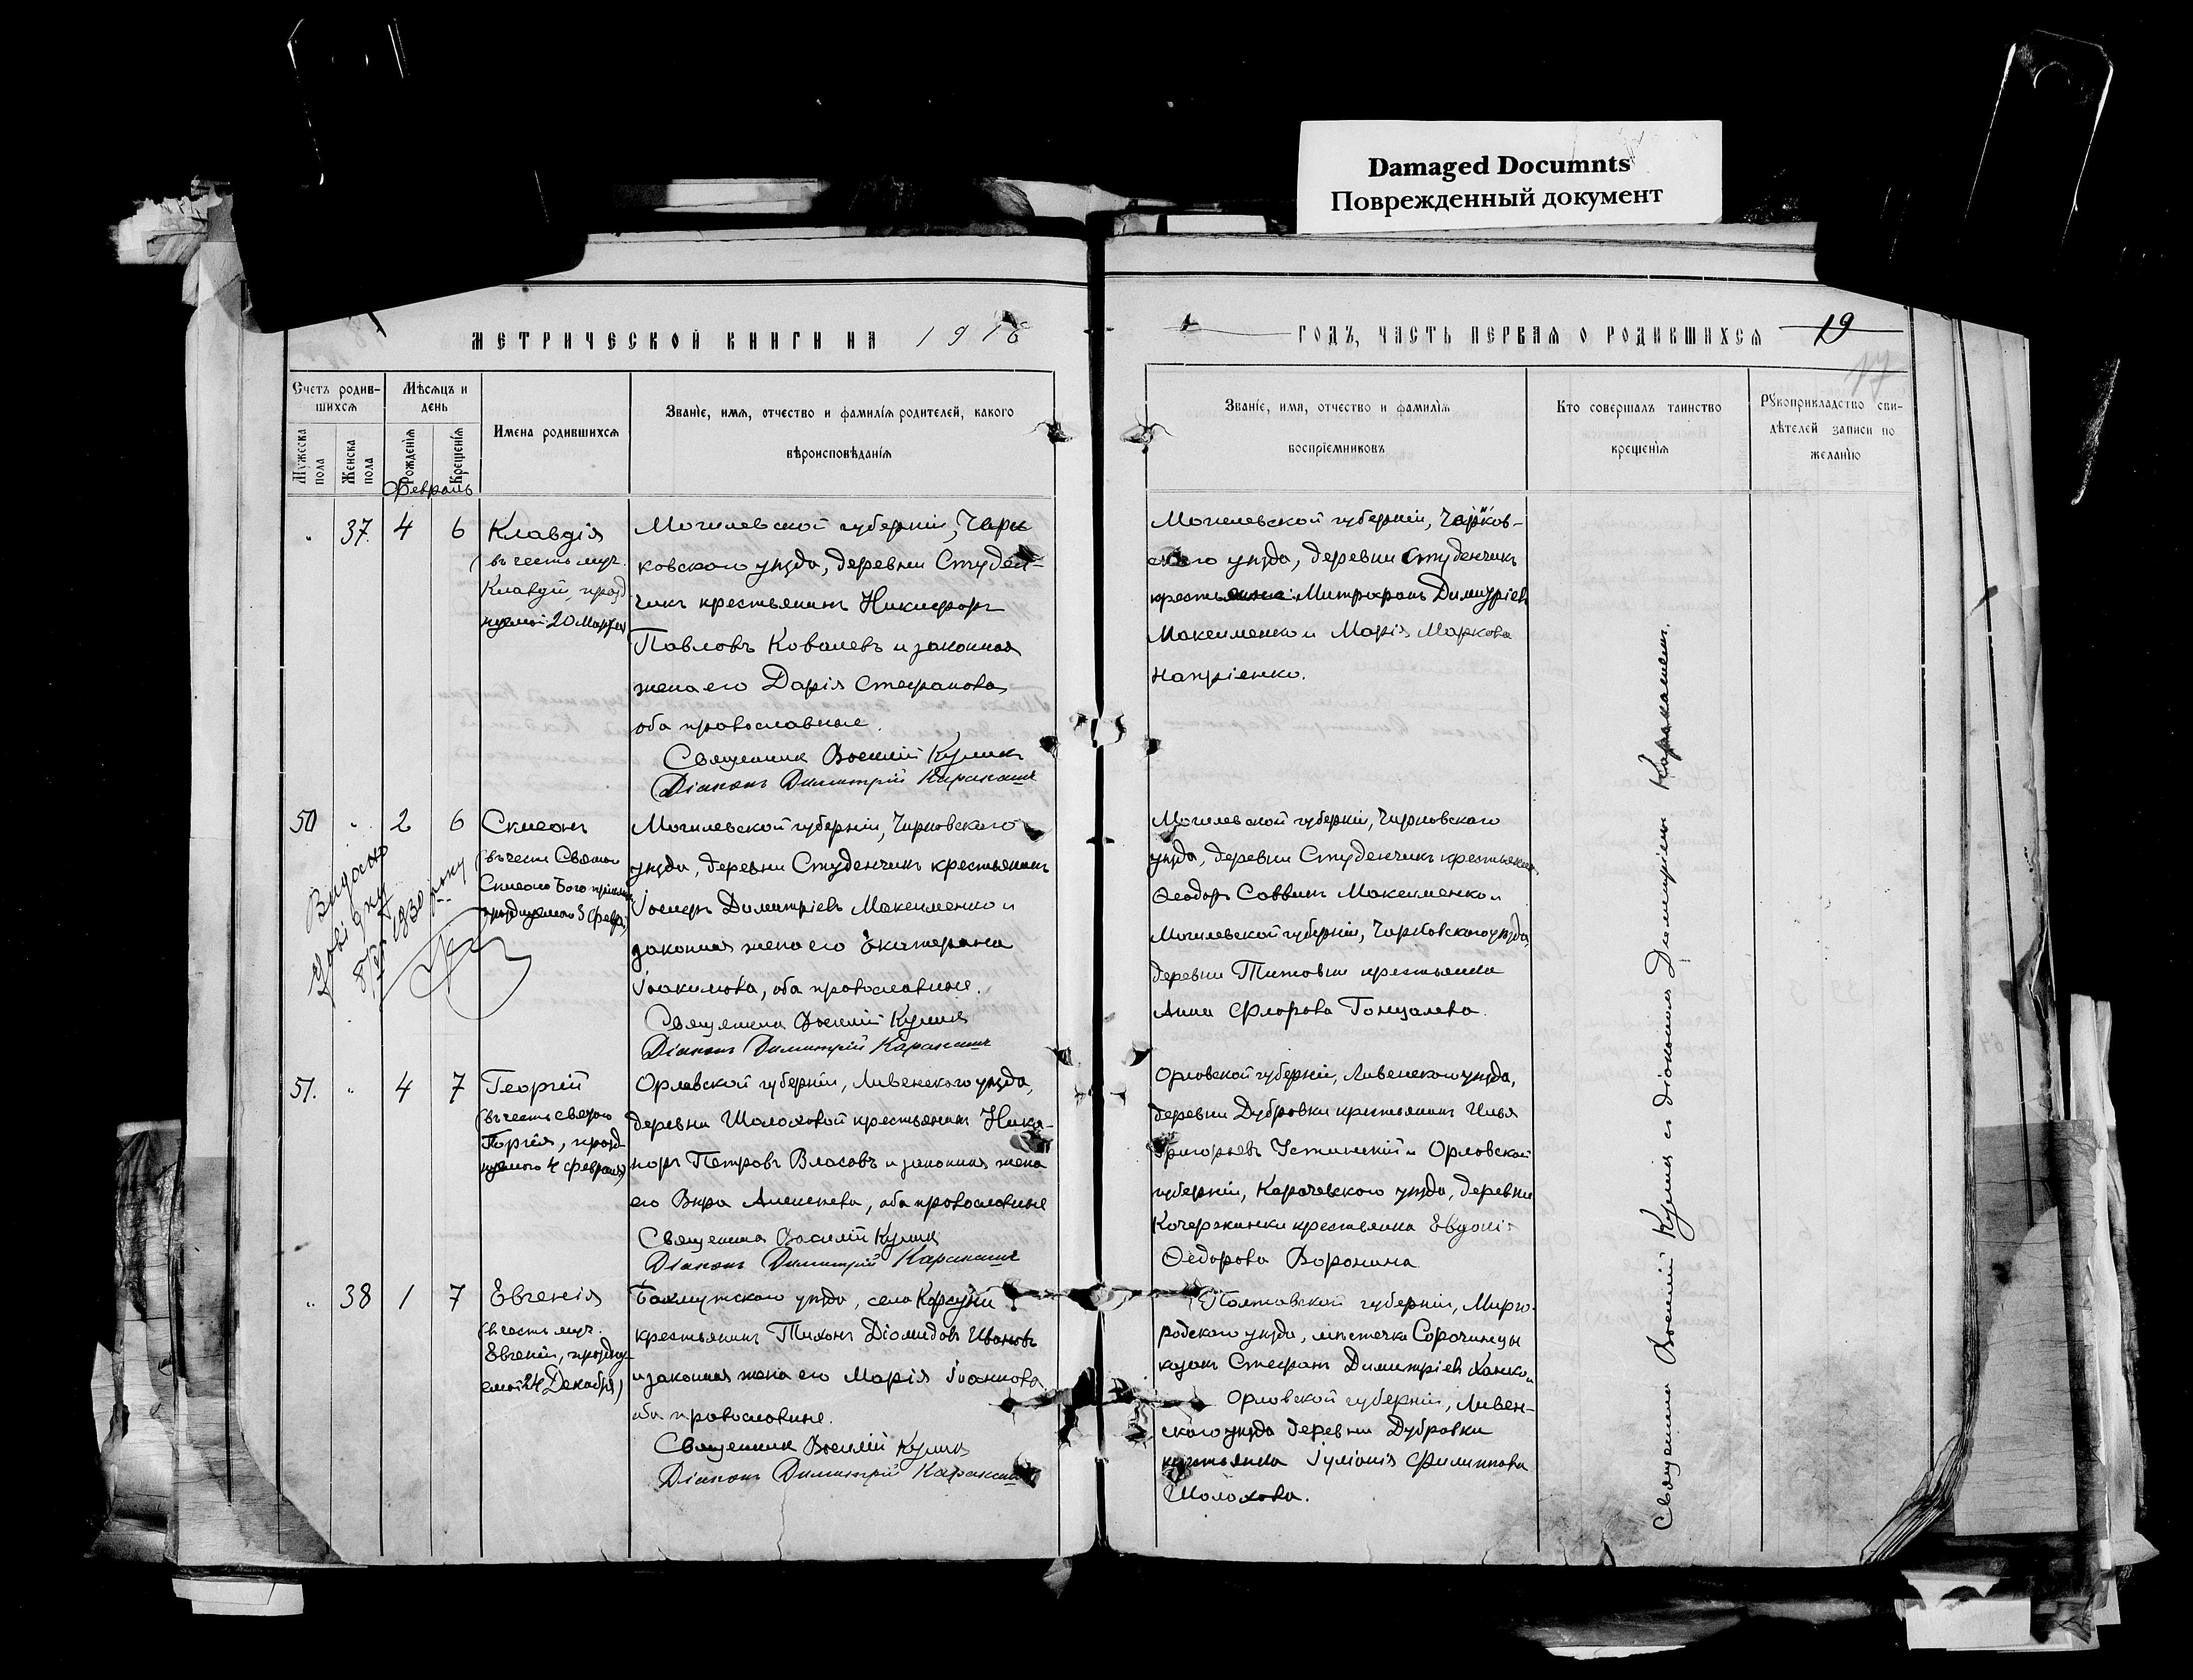 Damaged Documnts
Поврежденный документ
МЕТРИЧЕСКОЙ КНИГИ НА 1918
ГОДЪ, ЧАСТЬ ПЕРВАЯ О РОДИВШИХСЯ
19
17
Счетъ родив-
шихся
Мѣсяцъ и
день
Мужеска
пола
Женска
пола
Рожденія
Крещенія
Имена родившихся
Званіе, имя, отчество и фамилія родителей, какого
вѣроисповѣданія
Званіе, имя, отчество и фамилія
воспріемниковъ
Кто совершалъ таинство
крещенія
Рукоприкладство сви-
дѣтелей записи по
желанію
Февраль
37. 4 6 Клавдія
(въ честь муч.
Клавдіи, празд
нуемой 20 Марта)
Могилевской губерніи, Чери
ковскаго уѣзда, деревни Студен-
чикъ крестьянинъ Никифоръ
Павловъ Ковалевъ и законная
жена его Дарія Стефанова,
оба православные.
Священникъ Василій Куликъ
Діаконъ Димитрій Каракашъ
Могилевской губерніи, Чериков-
скаго уѣзда, деревни Студенчикъ
Митрофанъ Димитріевъ
Максименко и Марія Маркова
Напріенко.
50 " 2 6 Симеонъ
(въ честь Святого
Симеона Богопріимца
празднуемаго 3 февр.)
Могилевской губерніи, Чериковскаго
уѣзда, деревни Студенчикъ крестьянинъ
Іосифъ Димитріевъ Максименко и
законная жена его Екатерина
Іоакимова, оба православные.
Священникъ Василій Куликъ
Діаконъ Димитрій Каракашъ
Могилевской губерніи, Чериковскаго
уѣзда, деревни Студенчикъ крестьянинъ
Ѳеодоръ Саввинъ Максименко и
Могилевской губерніи, Чериковскаго уѣзда,
деревни Титовки крестьянка
Анна Флорова Гонцалева.
Видано
довідку
1930 року
51. " 4 7 Георгій
(въ честь святого
Георгія, празд-
нуемаго 4 февраля)
Орловской губерніи, Ливенскаго уѣзда,
деревни Шолоховой крестьянинъ Ника-
норъ Петровъ Власовъ и законная жена
его Вѣра Алексѣева, оба православные
Священникъ Василій Куликъ
Діаконъ Димитрій Каракашъ
Орловской губерніи, Ливенскаго уѣзда,
деревни Дубровки крестьянинъ Илья
Григорьевъ Устинскій и Орловской
губерніи, Карачевскаго уѣзда, деревни
крестьянка Евдокія
Ѳедорова Воронина
" 38 1 7 Евгенія
(въ честь муч.
Евгеніи, празднуе
емой 24 Декабря)
Бахмутскаго уѣзда, села Корсуни
крестьянинъ Тихонъ Діомидовъ Ивановъ
и законная жена его Марія Іоаннова
оба православные.
Священникъ Василій Куликъ
Діаконъ Димитрій Каракашъ
Полтавской губерніи, Мирго-
родскаго уѣзда, мѣстечка Сорочинцы
козакъ Стефанъ Димитріевъ Ханко и
Орловской губерніи, Ливен-
скаго уѣзда деревни Дубровки
крестьянка Іуліанія Филиппова
Шолохова.
Священникъ Василій Куликъ съ діакономъ Димитріемъ Каракашемъ.